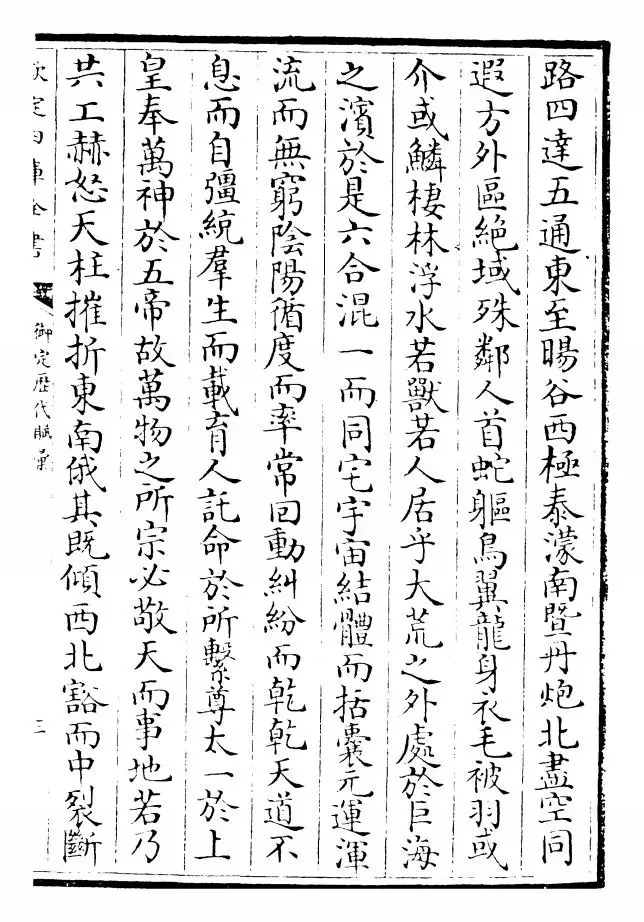 路四達五通東至暘谷西極泰濛南暨丹炮北盡空同
遐方外區絕域殊鄰人首蛇軀鳥翼龍身衣毛被羽或
介或鱗棲林浮水若獸若人居乎大荒之外處於巨海
之濱於是六合混一而同宅宇宙結體而括囊元運渾
流而無窮陰陽循度而率常回動糾紛而乾乾天道不
息而自彊統羣生而載育人託命於所繫尊太一於上
皇奉萬神於五帝故萬物之所宗必敬天而事地若乃
共工赫怒天柱摧折東南俄其既傾西北豁而中裂斷
欽定四庫全書
御定歷代賦彙
三